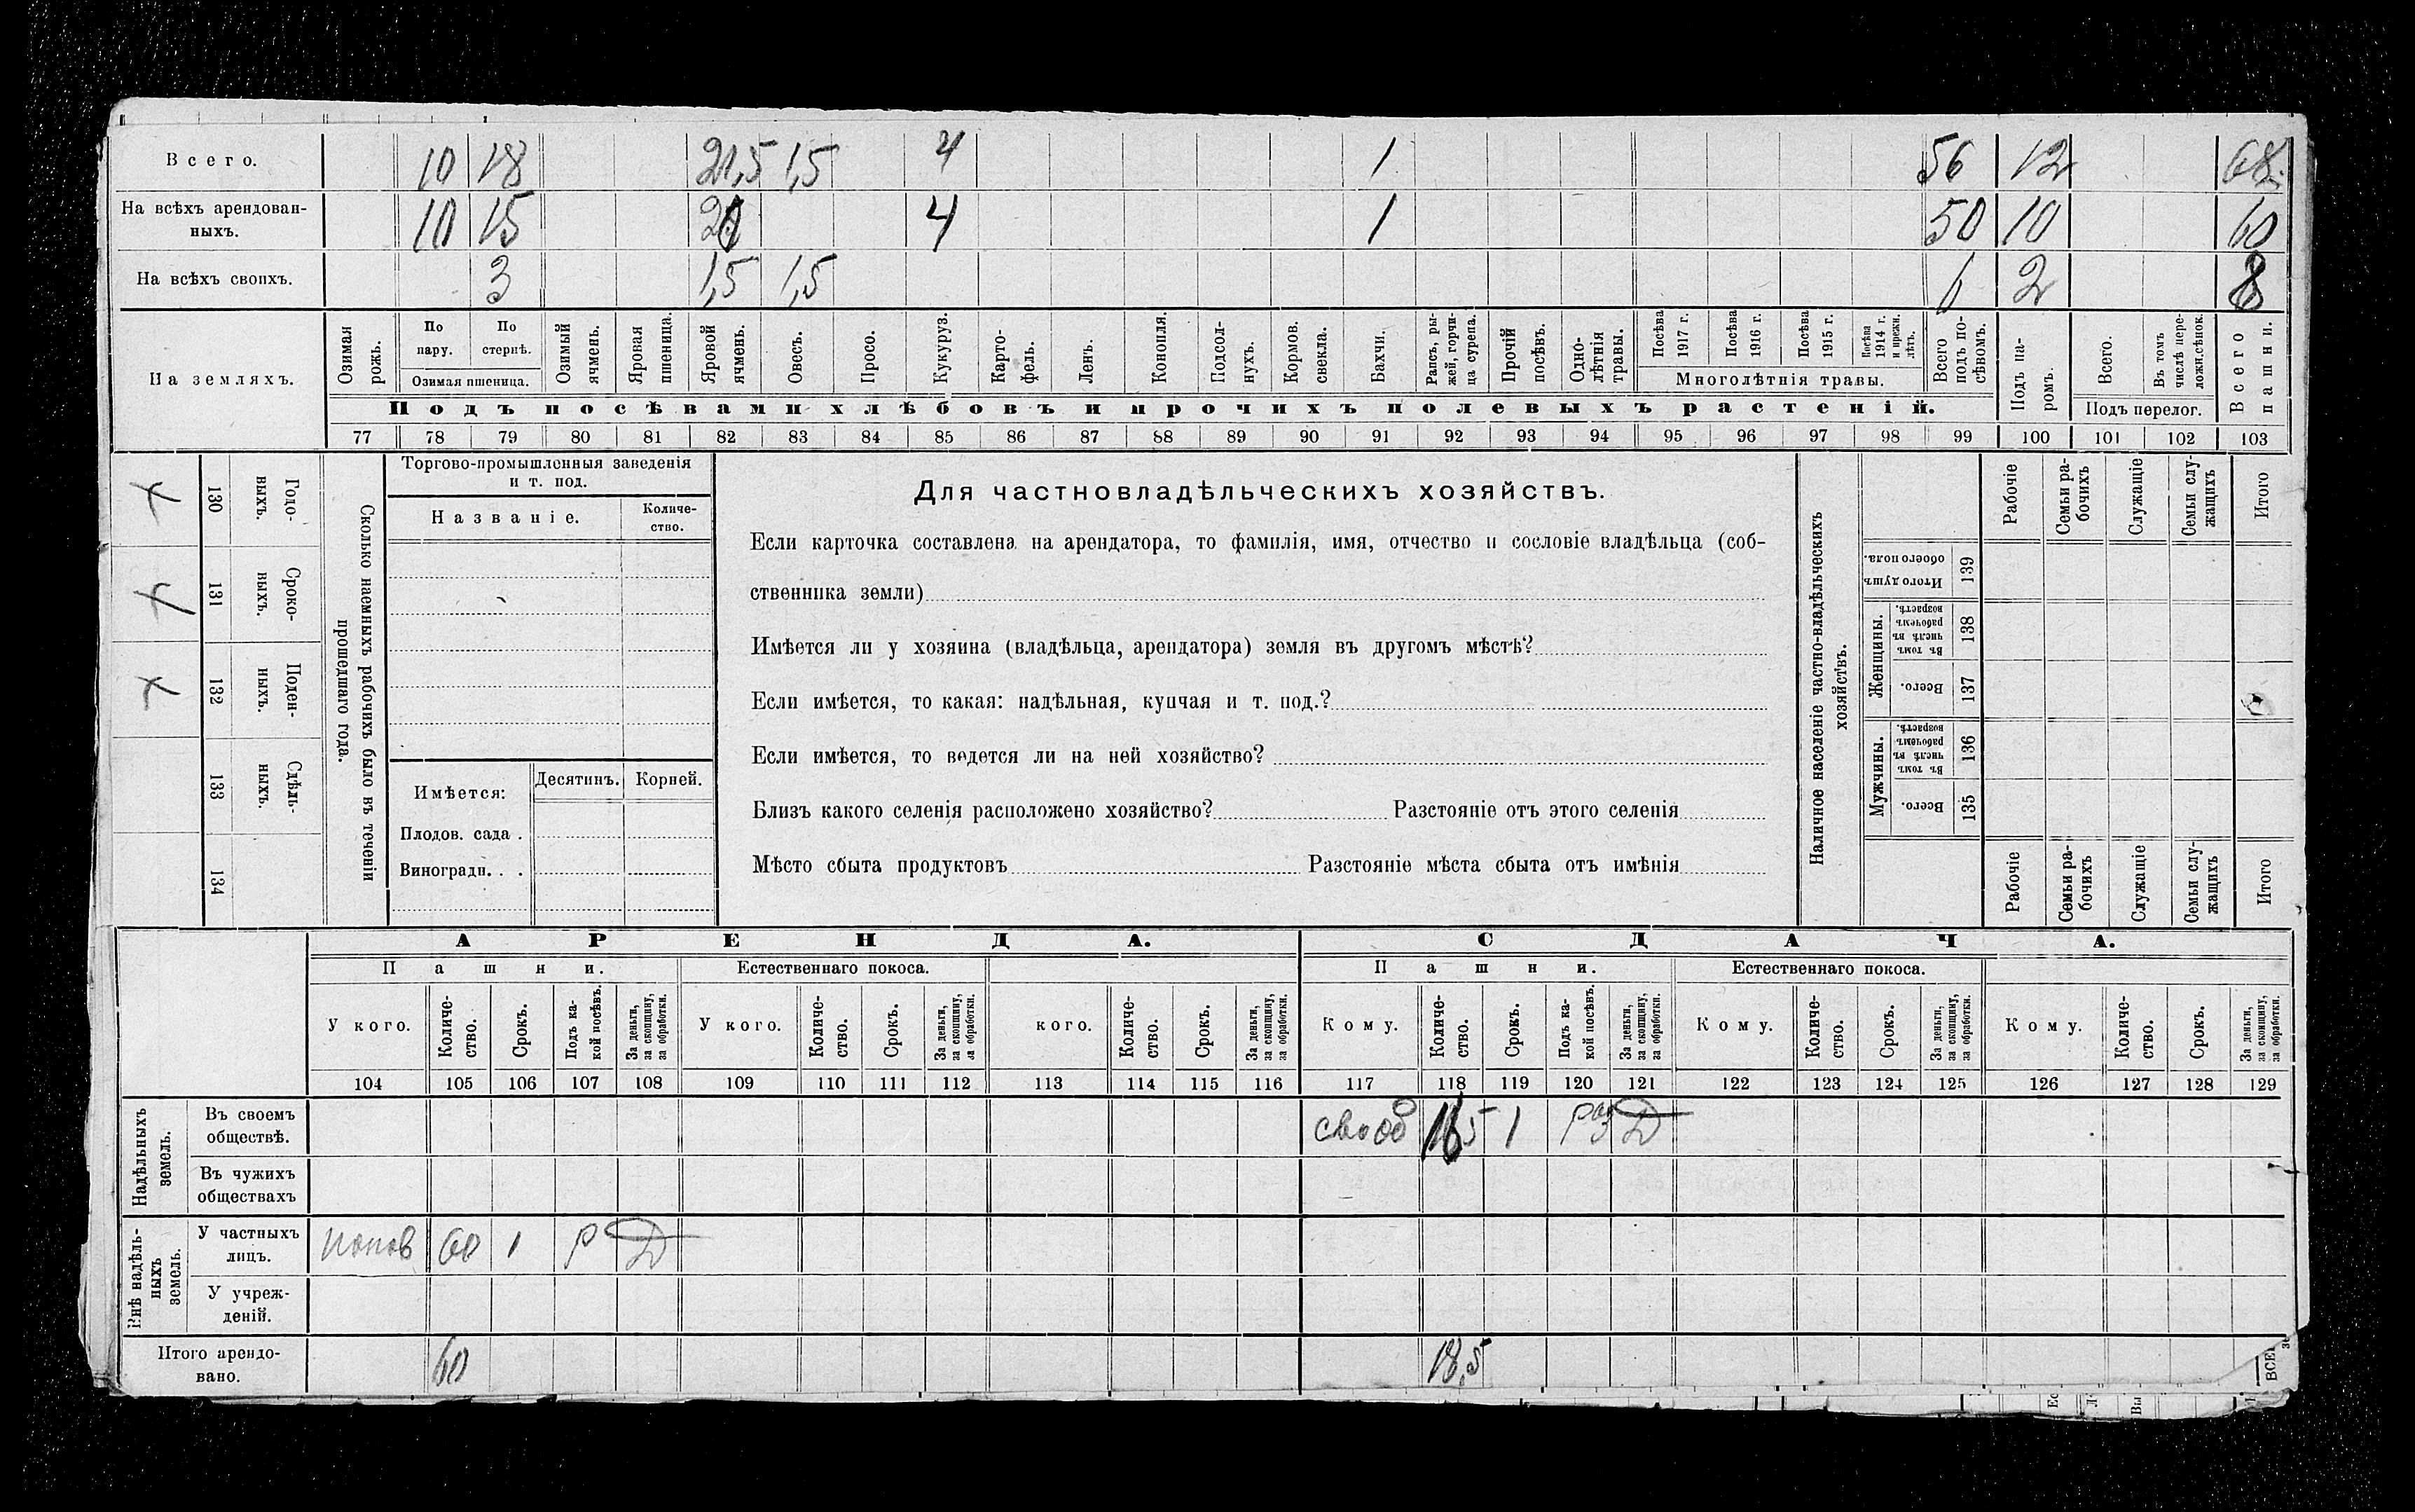 Всего. 10 18 21,5 1,5 4 1 56 12 68
На всѣхъ арендован-
ныхъ. 10 15 20 4 1 50 10 60
На всѣхъ своихъ. 3 1,5 1,5 6 2 8
На земляхъ.
Озимая рожь.
По пару.
По стернѣ.
Озимая пшеница.
Озимый ячмень.
Яровая пшеница.
Яровой ячмень.
Овесъ.
Просо.
Кукуруз.
Карто-
фель.
Ленъ.
Конопля.
Подсол-
нухъ.
Кормов.
свекла.
Бахчи.
Рапсъ, ры-
жей, горчи-
ца сурепа.
Прочій
посѣвъ.
Одно-
лѣтнія
травы.
Посѣва
1917 г.
Посѣва
1916 г.
Посѣва
1915 г.
Посѣва
1914 г.
и прежн.
лѣтъ.
Многолѣтнія травы.
Всего
подъ по-
сѣвомъ.
Подъ па-
ромъ.
Всего.
Въ томъ
числѣ пере-
ложн.сѣнок.
Подъ перелог.
Всего
пашни.
Подъ посѣвами хлѣбовъ и прочихъ полевыхъ растеній.
77 78 79 80 81 82 83 84 85 86 87 88 89 90 91 92 93 94 95 96 97 98 99 100 101 102 103
130 Годо-
ныхъ.
131 Сроко-
ныхъ.
132 Поден-
ныхъ.
133 Сдѣль-
ныхъ.
134
Сколько наемныхъ рабочихъ было въ теченіи
прошедшаго года.
Торгово-промышленныя заведенія
и т. под.
Названіе.
Количе-
ство.
Имѣется:
Десятинъ. Корней.
Плодов. сада .
Виноградн. . .
Для частновладѣльческихъ хозяйствъ.
Если карточка составлена на арендатора, то фамилія, имя, отчество и сословіе владѣльца (соб-
ственника земли)
Имѣется ли у хозяина (владѣльца, арендатора) земля въ другомъ мѣстѣ?
Если имѣется, то какая: надѣльная, купчая и т. под.?
Если имѣется, то ведется ли на ней хозяйство?
Близъ какого селенія расположено хозяйство? Разстояніе отъ этого селенія
Мѣсто сбыта продуктовъ Разстояніе мѣста сбыта отъ имѣнія
Наличное населеніе частно-владѣльческихъ
хозяйствъ.
Рабочіе
Семьи ра-
бочихъ
Служащіе
Семьи слу-
жащихъ
Итого
Итого душъ
обоего пола.
139
Женщины.
Въ томъ
числѣ въ
рабочемъ
возрастѣ.
138
Всего.
137
Мужчины.
Въ томъ
числѣ въ
рабочемъ
возрастѣ.
136
Всего.
135
Рабочіе
Семьи ра-
бочихъ
Служащіе
Семьи слу-
жащихъ
Итого
АРЕНДА. СДАЧА.
Пашни. Естественнаго покоса. Пашни. Естественнаго покоса.
У кого.
Количе-
ство.
Срокъ.
Подъ ка-
кой посѣвъ.
За деньги,
за скопщину,
за обработки.
У кого.
Количе-
ство.
Срокъ.
За деньги,
за скопщину,
за обработки.
кого.
Количе-
ство.
Срокъ.
За деньги,
за скопщину,
за обработки.
Кому.
Количе-
ство.
Срокъ.
Подъ ка-
кой посѣвъ.
За деньги,
за скопщину,
за обработки.
Кому.
Количе-
ство.
Срокъ.
За деньги,
за скопщину,
за обработки.
Кому.
Количе-
ство.
Срокъ.
За деньги,
за скопщину,
за обработки.
104 105 106 107 108 109 110 111 112 113 114 115 116 117 118 119 120 121 122 123 124 125 126 127 128 129
Надѣльныхъ
земель.
Въ своемъ
обществѣ. 1 раз Д
Въ чужихъ
обществахъ
Внѣ надѣль-
ныхъ
земель.
У частныхъ
лицъ. попов 60 1 р Д
У учреж-
деній.
Итого арендо-
вано. 60 18,5